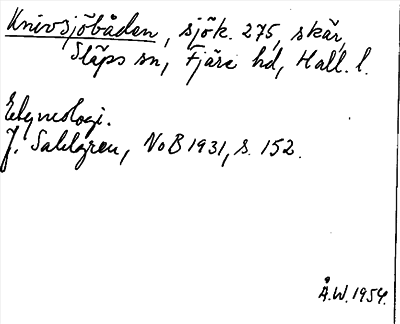 Knivsjöbåden, sjök. 275, skär,
Släps sn, Fjäre hd, Hall. l.
Etymologi.
J. Sahlgren, NoB 1931, s. 152.
Å.W. 1954.